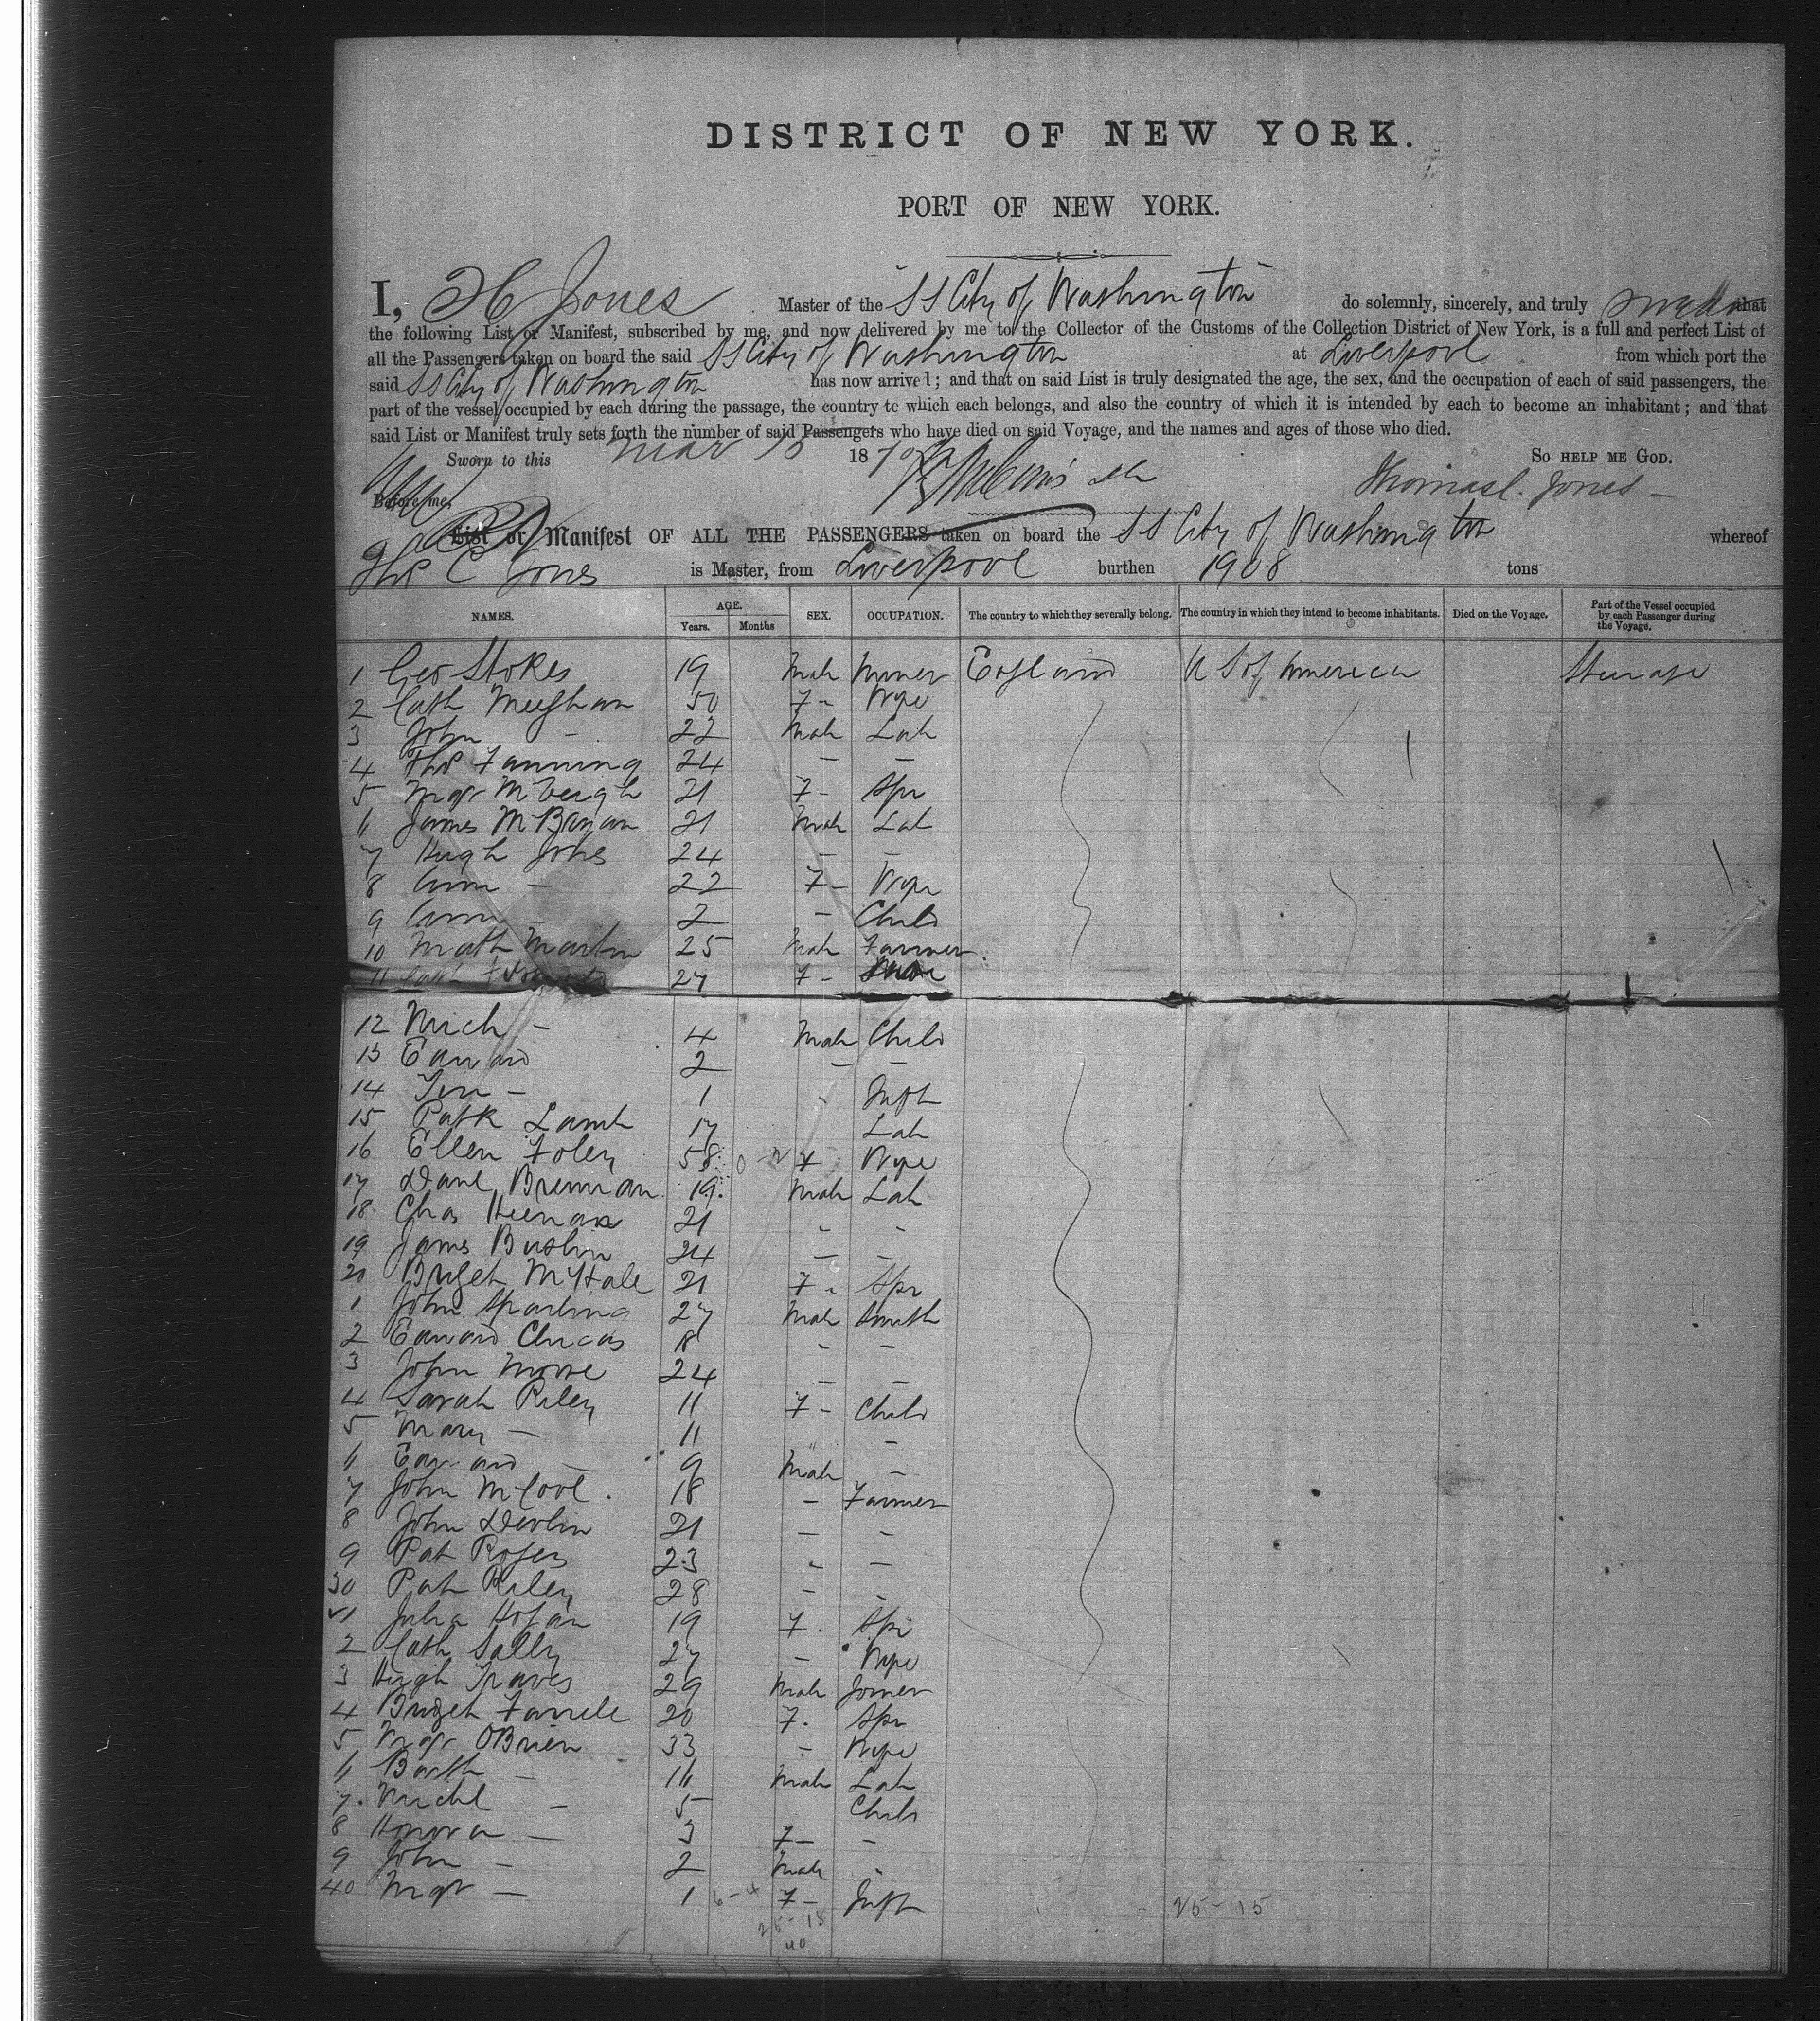 DISTRICT OF NEW YORK.
PORT OF NEW YORK.
I, Jones Master of the "SS City of Washington" do solemnly, sincerely, and truly that
the following List or Manifest, subscribed by me, and now delivered by me to the Collector of the Customs of the Collection District of New York, is a full and perfect List of
all the Passengers taken on board the said SS City of Washington at Liverpool from which port the
said SS City of Washington has now arrived; and that on said List is truly designated the age, the sex, and the occupation of each of said passengers, the
part of the vessel occupied by each during the passage, the country to which each belongs, and also the country of which it is intended by each to become an inhabitant; and that
said List or Manifest truly sets forth the number of said Passengers who have died on said Voyage, and the names and ages of those who died.
Sworn to this Mar 187 So HELP ME GOD.
Before me, Thomas C. Jones
List or Manifest OF ALL THE PASSENGERS taken on board the SS City of Washington whereof
Thos C Jones is Master, from Liverpool burthen 1908 tons
NAMES. AGE. Years. Months SEX. OCCUPATION. The country to which they severally belong. The country in which they intend to become inhabitants. Died on the Voyage. Part of the Vessel occupied by each Passenger during the Voyage.
1 Geo Stokes 19 Male Miner England U S of America Steerage
2 Cath Meeghan 50 F - Wife
3 John - 22 Male Lab
4 Thos Fanning 24 - -
5 Mgr 21 F - Spr
6 James McBryan 21 Male Lab
7 Hugh Jones 24 - -
8 Ann - 22 F - Wife
9 Ann - 2 - Child
10 Math Martin 25 Male Farmer
11 Cath 27 F -
12 Mich - 4 Male Child
13 Edward 2 - -
14 - 1 - Inft
15 Patk Lamb 17 Lab
16 Ellen Foley 58 F Wife
17 Danl Brennan 19 Male Lab
18 Chas Heenan 21 - -
19 James 24 - -
20 Bridget McHale 21 F - Spr
1 John Sparling 27 Male Smith
2 Edward 18 - -
3 John Moore 24 - -
4 Sarah Riley 11 F - Child
5 Mary - 11 " -
6 Edward - 9 Male -
7 John McCool 18 - Farmer
8 John Devlin 21 - -
9 Pat Rogers 23 - -
30 Pat Riley 28 - -
1 Julia Hogan 19 F. Spr
2 Cath Sally 27 - Wife
3 Hugh Graves 29 Male Joiner
4 Bridget Farrell 20 F. Spr
5 Mgr OBrien 33 - Wife
6 Barth - 16 Male Lab
7 Michl - 5 Child
8 Honora - 3 F - -
9 John - 2 Male -
40 Mgr - 1 6-4 F - Inft
25-15 25-15
40